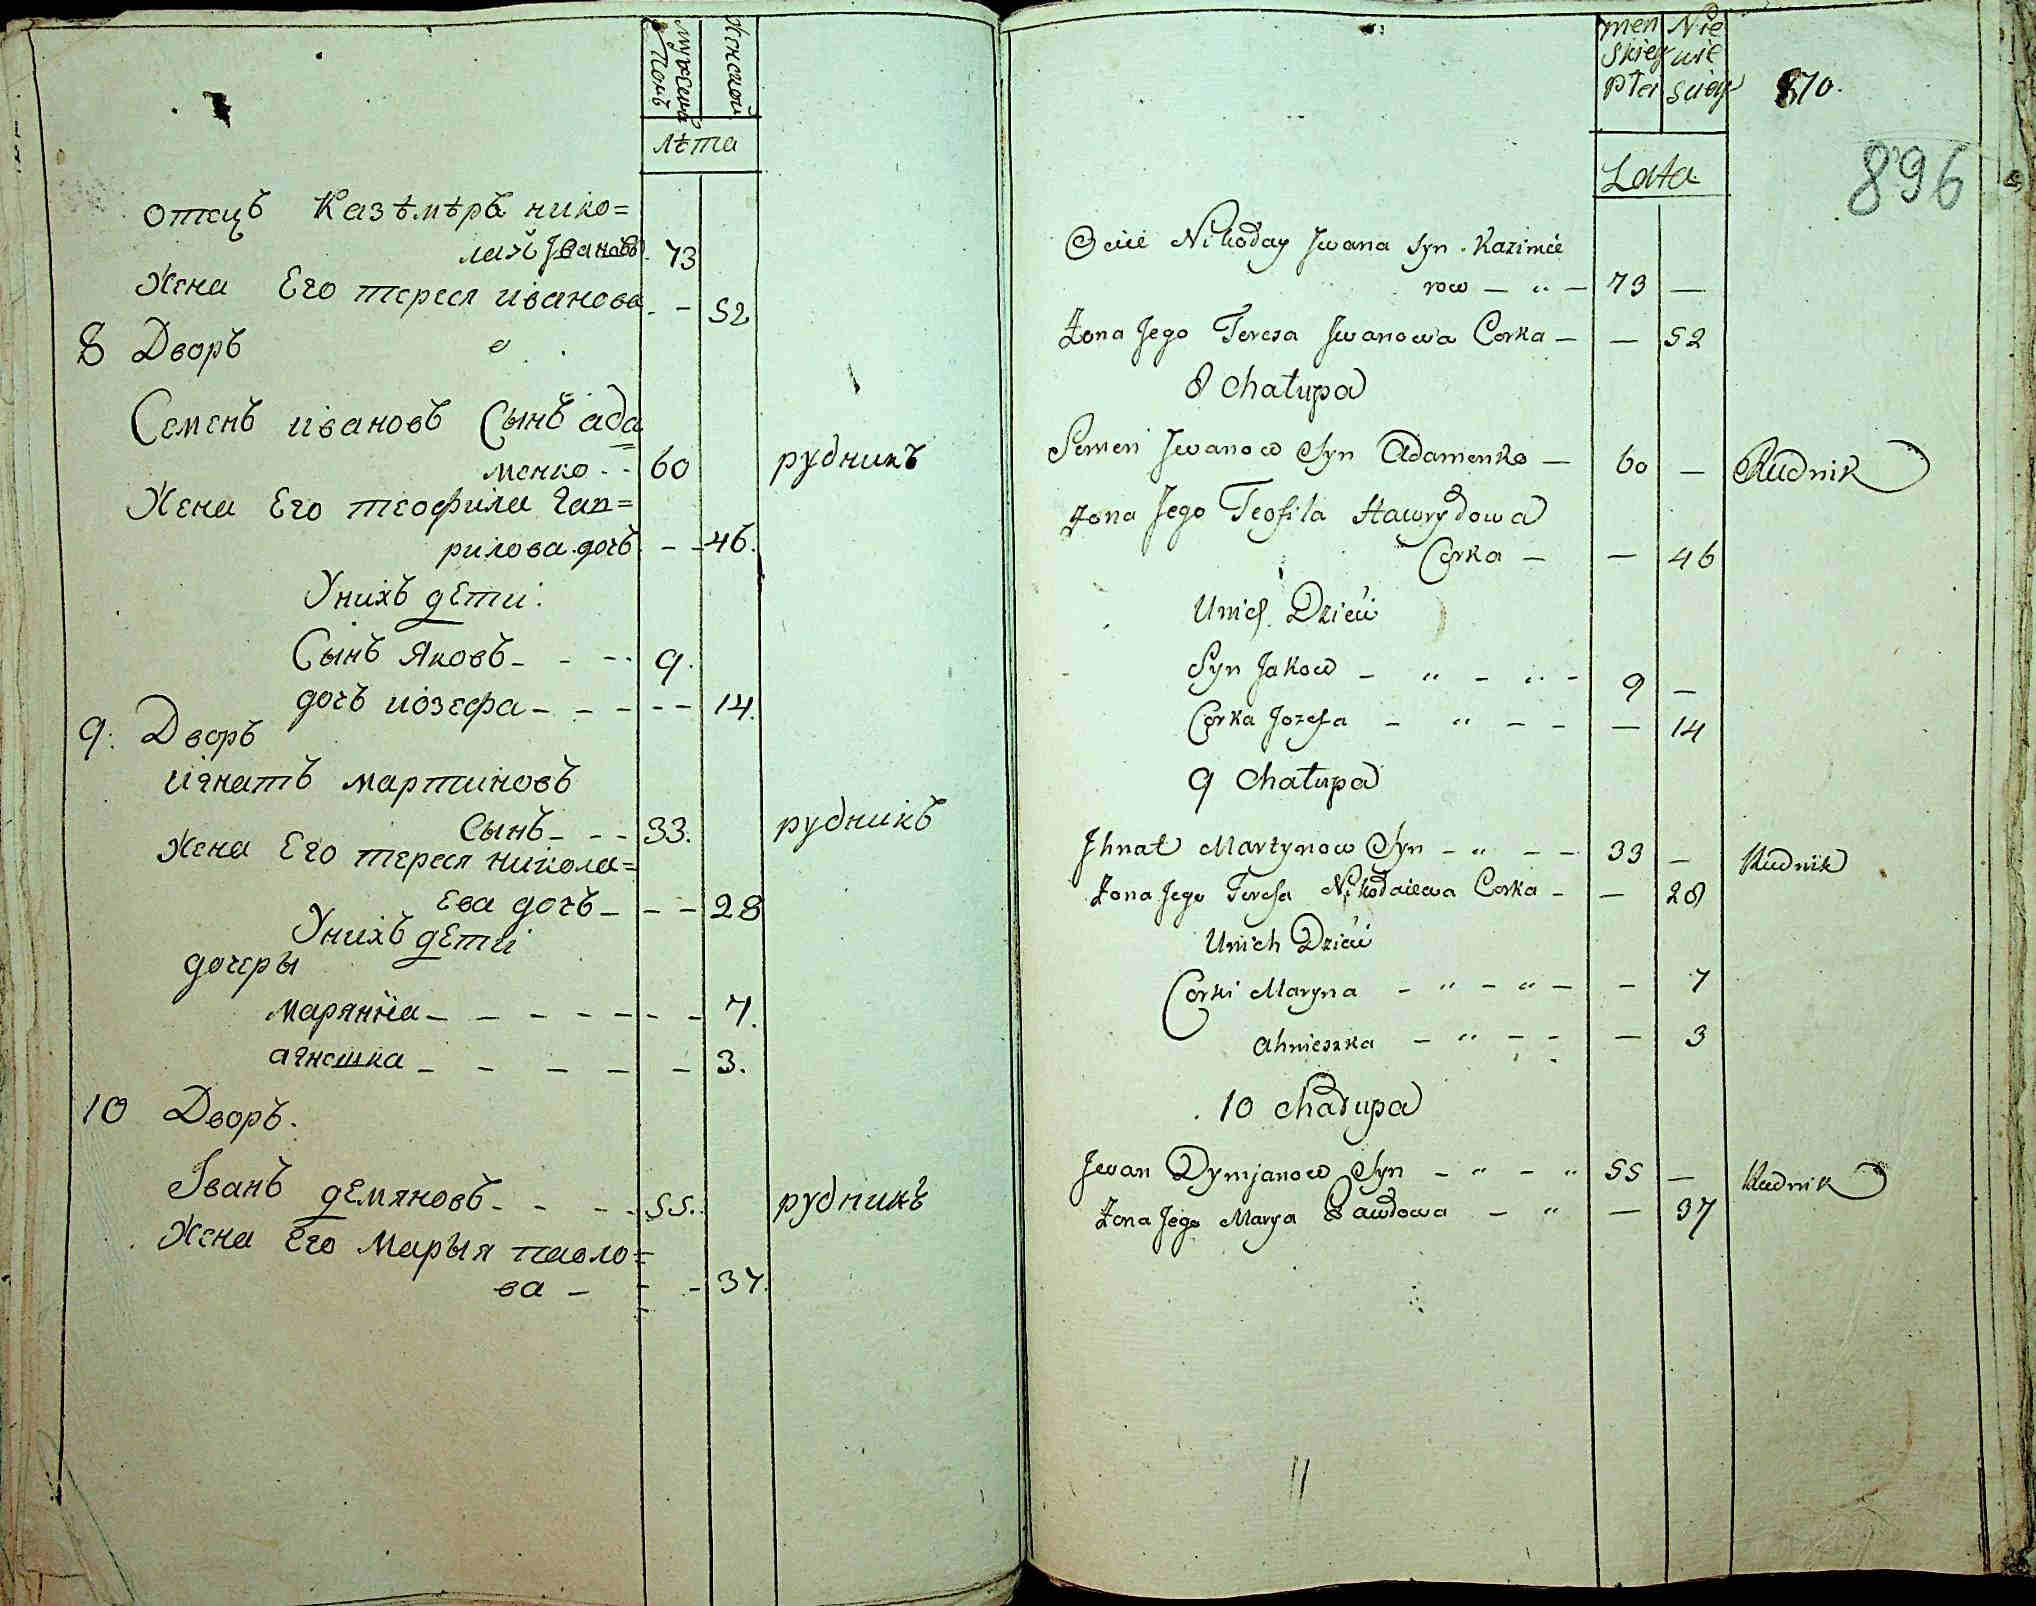 Полъ
мужеска
Женской
лѣта
отецъ Казѣмѣра нико=
лай Јвановъ 73
Жена Его тереся иванова - 52
8 Дворъ
Семенъ ивановъ Сынъ ада
менко - - 60 рудникъ
Жена Его теофила гав=
рилова дочъ - - 46.
Унихъ дети.
Сынъ Яковъ - - - 9.
дочъ иозефа - - - - - 14.
9. Дворъ
игнатъ мартиновъ
Сынъ - - - 33. рудникъ
Жена Его тереся никола=
Ева дочъ - - - 28
Унихъ дети
дочеры
марянна - - - - - - - 7.
агнешка - - - - - - 3.
10 Дворъ.
Іванъ демяновъ - - - - 55. рудникъ
Жена Его Марыя павло=
ва - - - 37.
men Nie
skiey wie
Płci sciey
870.
896
Lata
Ociec Nikołay Jwana Syn Kazimie
row - „ - 73 -
Żona Jego Teresa Jwanowa Corka - - 52
8 Chałupa
Semen Jwanow Syn Adamenko - 60 - Rudnik
Żona Jego Teofila Hawryłowa
Corka - - 46
Unich Dzieci
Syn Jakow - „ - „ - 9 -
Corka Jozefa - „ - - - 14
9 Chałupa
Jhnat Martynow Syn - „ - - 33 - Rudnik
Żona Jego Teresa Nikołaiewa Corka - - 28
Unich Dzieci
Corki Maryna - „ - „ - - 7
Ahnieszka - „ - - - 3
10 Chałupa
Jwan Dymjanow Syn - „ - „ 55 - Rudnik
Żona Jego Marya Pawłowa - „ - 37